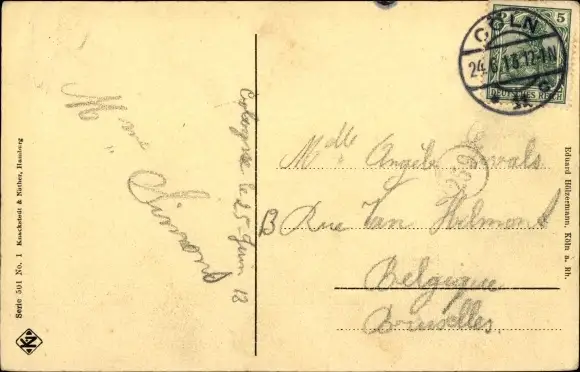 5
CÖLN
DEUTSCHES REICH
Mme Simons
Cologne le 25 Juin 12
Mdlle Angèle
B Rue Van Helmont
Belgique
Bruxelles.
Serie 501 No. 1 Knackstedt & Näther, Hamburg
Eduard Hölzermann, Köln a. Rh.